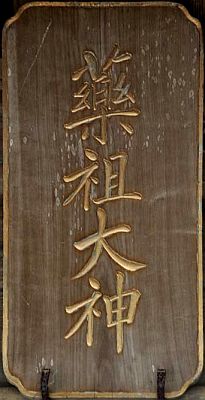 藥祖大神